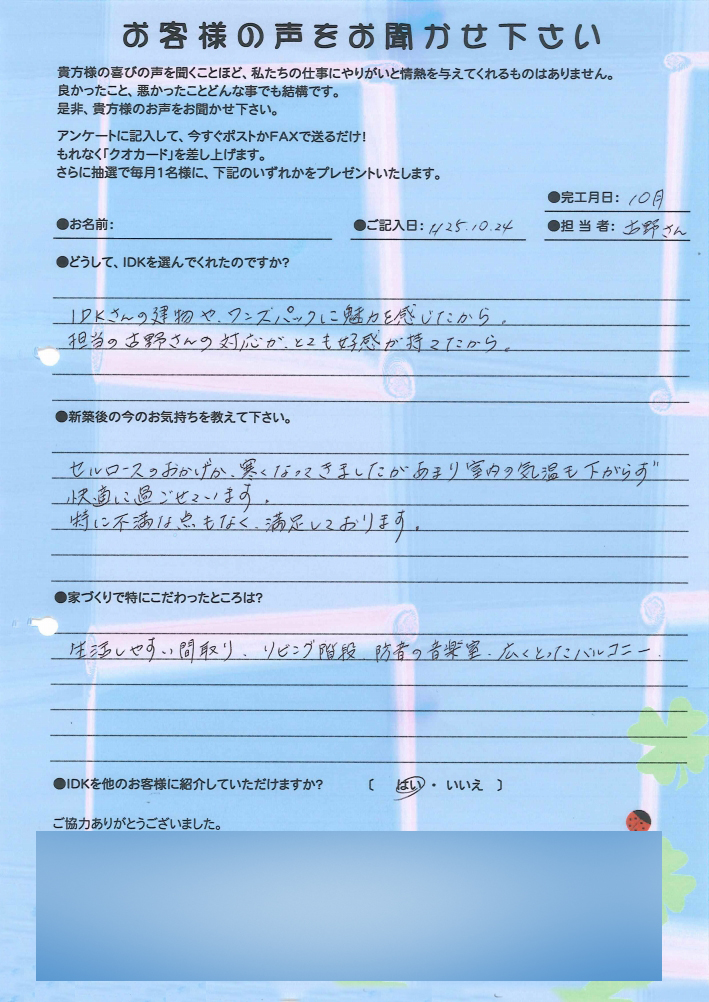 お客様の声をお聞かせ下さい
貴方様の喜びの声を聞くことほど、私たちの仕事にやりがいと情熱を与えてくれるものはありません。
良かったこと、悪かったことどんな事でも結構です。
是非、貴方様のお声をお聞かせ下さい。
アンケートに記入して、今すぐポストかFAXで送るだけ!
もれなく「クオカード」を差し上げます。
さらに抽選で毎月1名様に、下記のいずれかをプレゼントいたします。
●完工月日: 10月
●お名前: ●ご記入日: H25.10.24 ●担当者: 古野さん
●どうして、IDKを選んでくれたのですか?
IDKさんの建物や、ワンズパックに魅力を感じたから。
担当の古野さんの対応が、とても好感が持てたから。
●新築後の今のお気持ちを教えて下さい。
セルロースのおかげか、寒くなってきましたがあまり室内の気温も下がらず
快適に過ごせています。
特に不満な点もなく、満足しております。
●家づくりで特にこだわったところは?
生活しやすい間取り、リビング階段、防音の音楽室、広くとったバルコニー
●IDKを他のお客様に紹介していただけますか? 〔 はい ・ いいえ 〕
ご協力ありがとうございました。